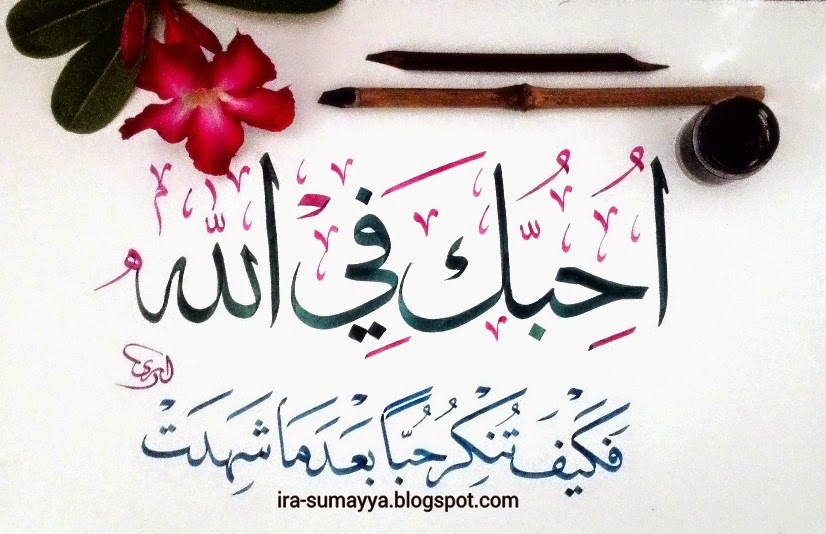 اُحِبُّكَ فِيْ اللّٰهُ
فَكَيْفَ تُنْكِرُ حُبًّا بَعْدَمَا شَهِدَتْ
ira-sumayya.blogspot.com